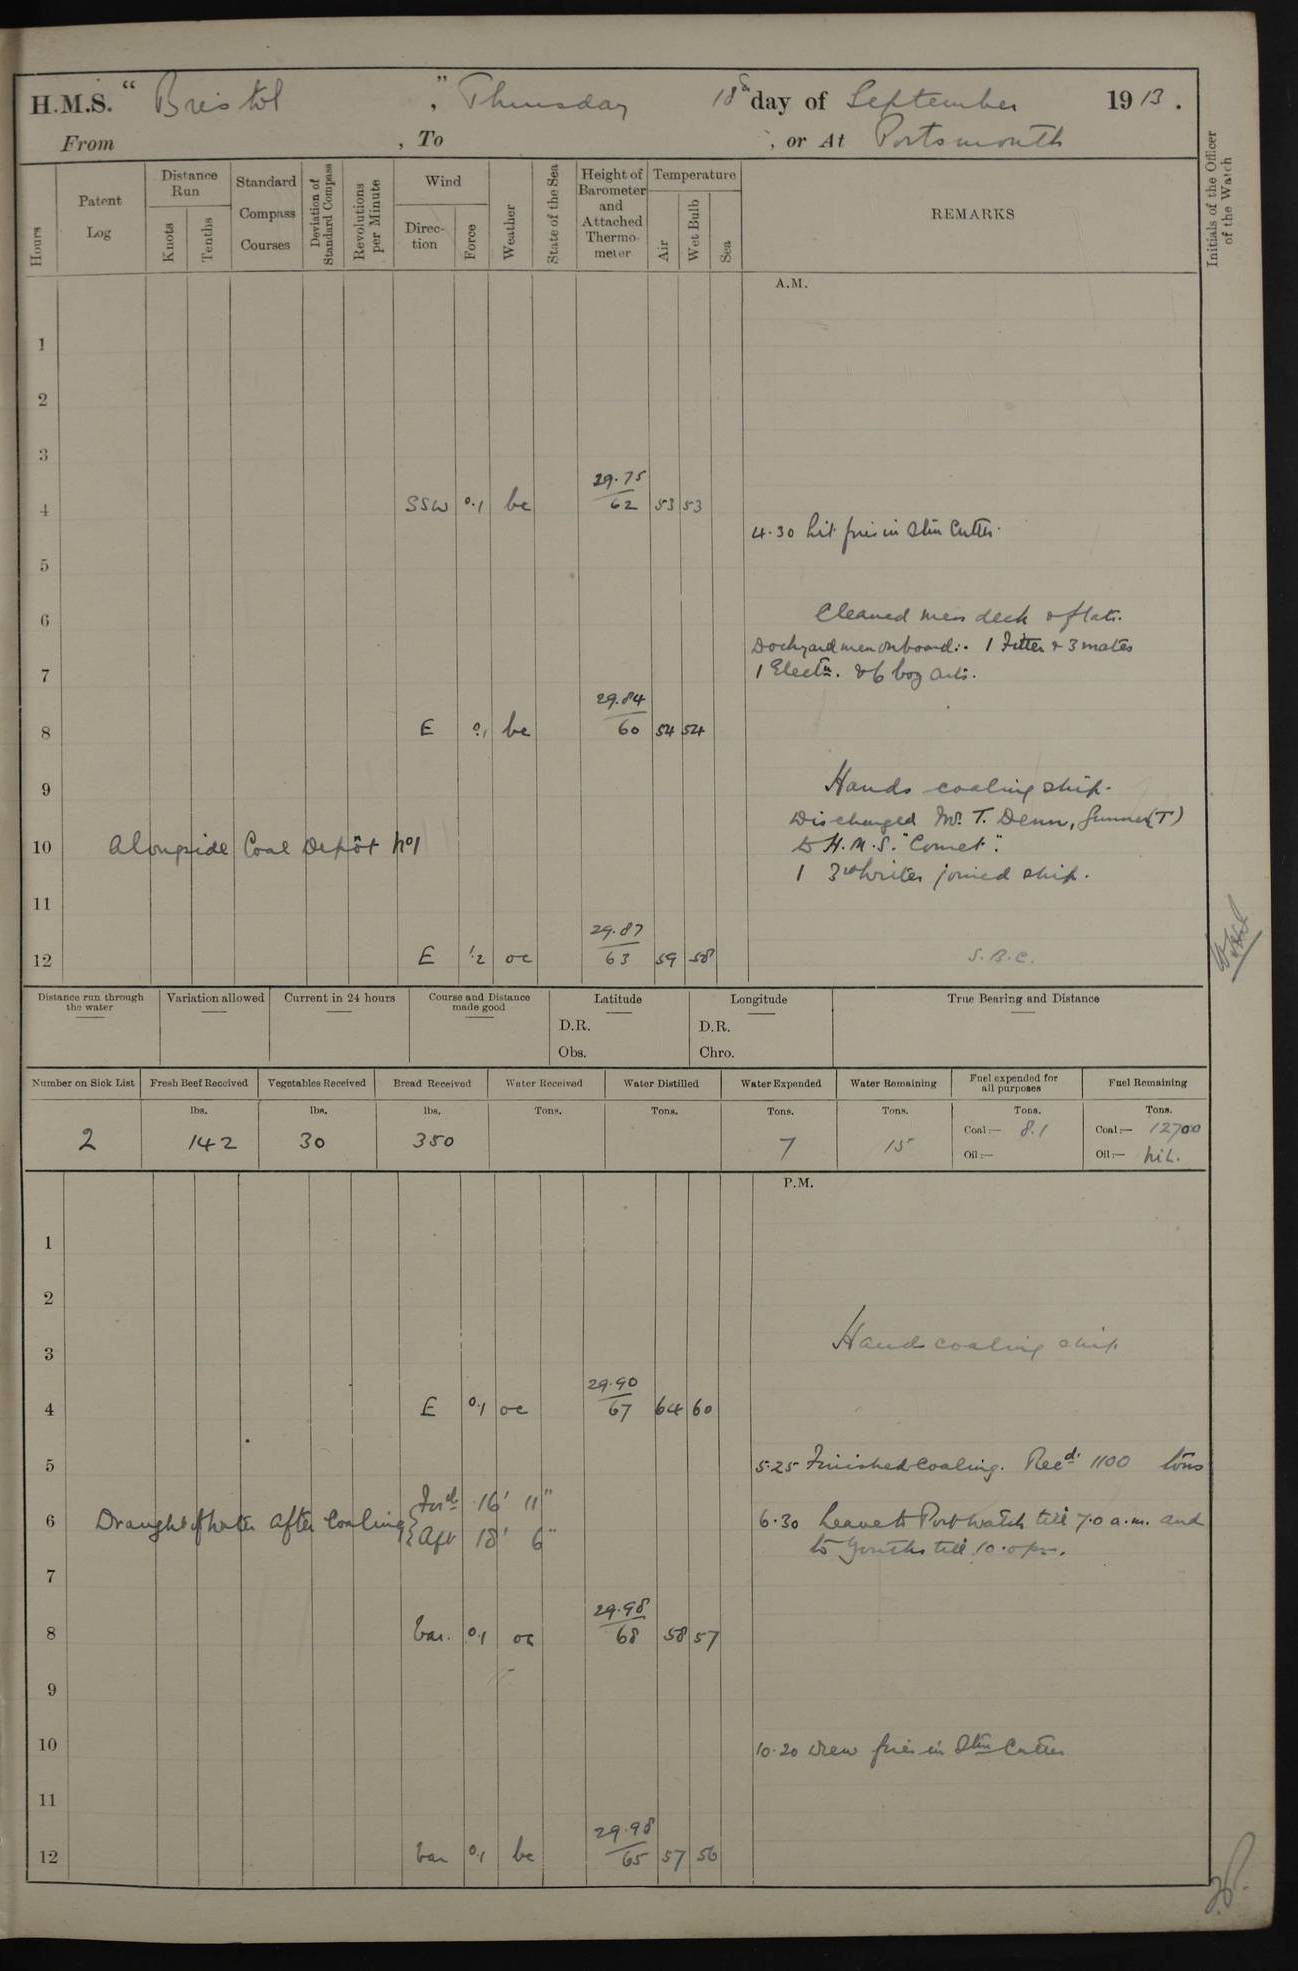 H.M.S. " Bristol ", Thursday 18th day of September 1913.
From , To , or At Portsmouth
Hours
Patent Log
Distance Run
Knots
Tenths
Standard Compass Courses
Deviation of Standard Compass
Revolutions per Minute
Wind
Direction
Force
Weather
State of the Sea
Height of Barometer and Attached Thermometer
Temperature
Air
Wet Bulb
Sea
REMARKS
Initials of the Officer of the Watch
A.M.
1
2
3
4 SSW 0.1 bc 29.75 62 53 53
4.30 Lit fires in Stm Cutter.
5
6 Cleaned mess deck & flats.
Dockyard men onboard:- 1 Fitter & 3 mates
7 1 Electn. & 6 boy arts.
8 E 0.1 bc 29.84 60 54 54
9 Hands coaling ship.
Discharged Mr. T. Denn, Gunner (T)
10 Alongside Coal Depôt No 1 to H.M.S. "Comet".
1 3rd Writer joined ship.
11
12 E 1/2 oc 29.87 63 59 58 S.B.C.
Distance run through the water
Variation allowed
Current in 24 hours
Course and Distance made good
Latitude
D.R.
Obs.
Longitude
D.R.
Chro.
True Bearing and Distance
Number on Sick List
Fresh Beef Received
Vegetables Received
Bread Received
Water Received
Water Distilled
Water Expended
Water Remaining
Fuel expended for all purposes
Fuel Remaining
lbs. lbs. lbs. Tons. Tons. Tons. Tons. Tons. Tons.
2 142 30 350 7 15 Coal:— 8.1 Coal:— 12700
Oil:— Oil:— Nil.
P.M.
1
2
3 Hands coaling ship
4 E 0.1 oc 29.90 67 64 60
5 5.25 Finished coaling. Recd. 1100 tons
Ford 16' 11"
6 Draught of water after coaling 6.30 Leave to Port Watch till 7.0 a.m. and
Aft 18' 6" to Youths till 10.0 pm.
7
8 Var. 0.1 oc 29.98 68 58 57
9
10 10.20 Drew fires in Stm Cutter
11
12 Var 0.1 bc 29.98 65 57 56